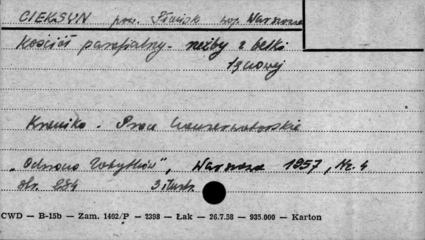 CIEKSYN pow. Płońsk woj. Warszawa
Kościół parafialny - rzeźby z belki
tęczowej
Kronika. Prace konserwatorskie
"Ochrona Zabytków", Warszawa 1957, Nr. 4
str. 284 3 ilustr.
CWD — B-15b — Zam. 1402/P — 2398 — Łak — 26.7.58 — 935.000 — Karton